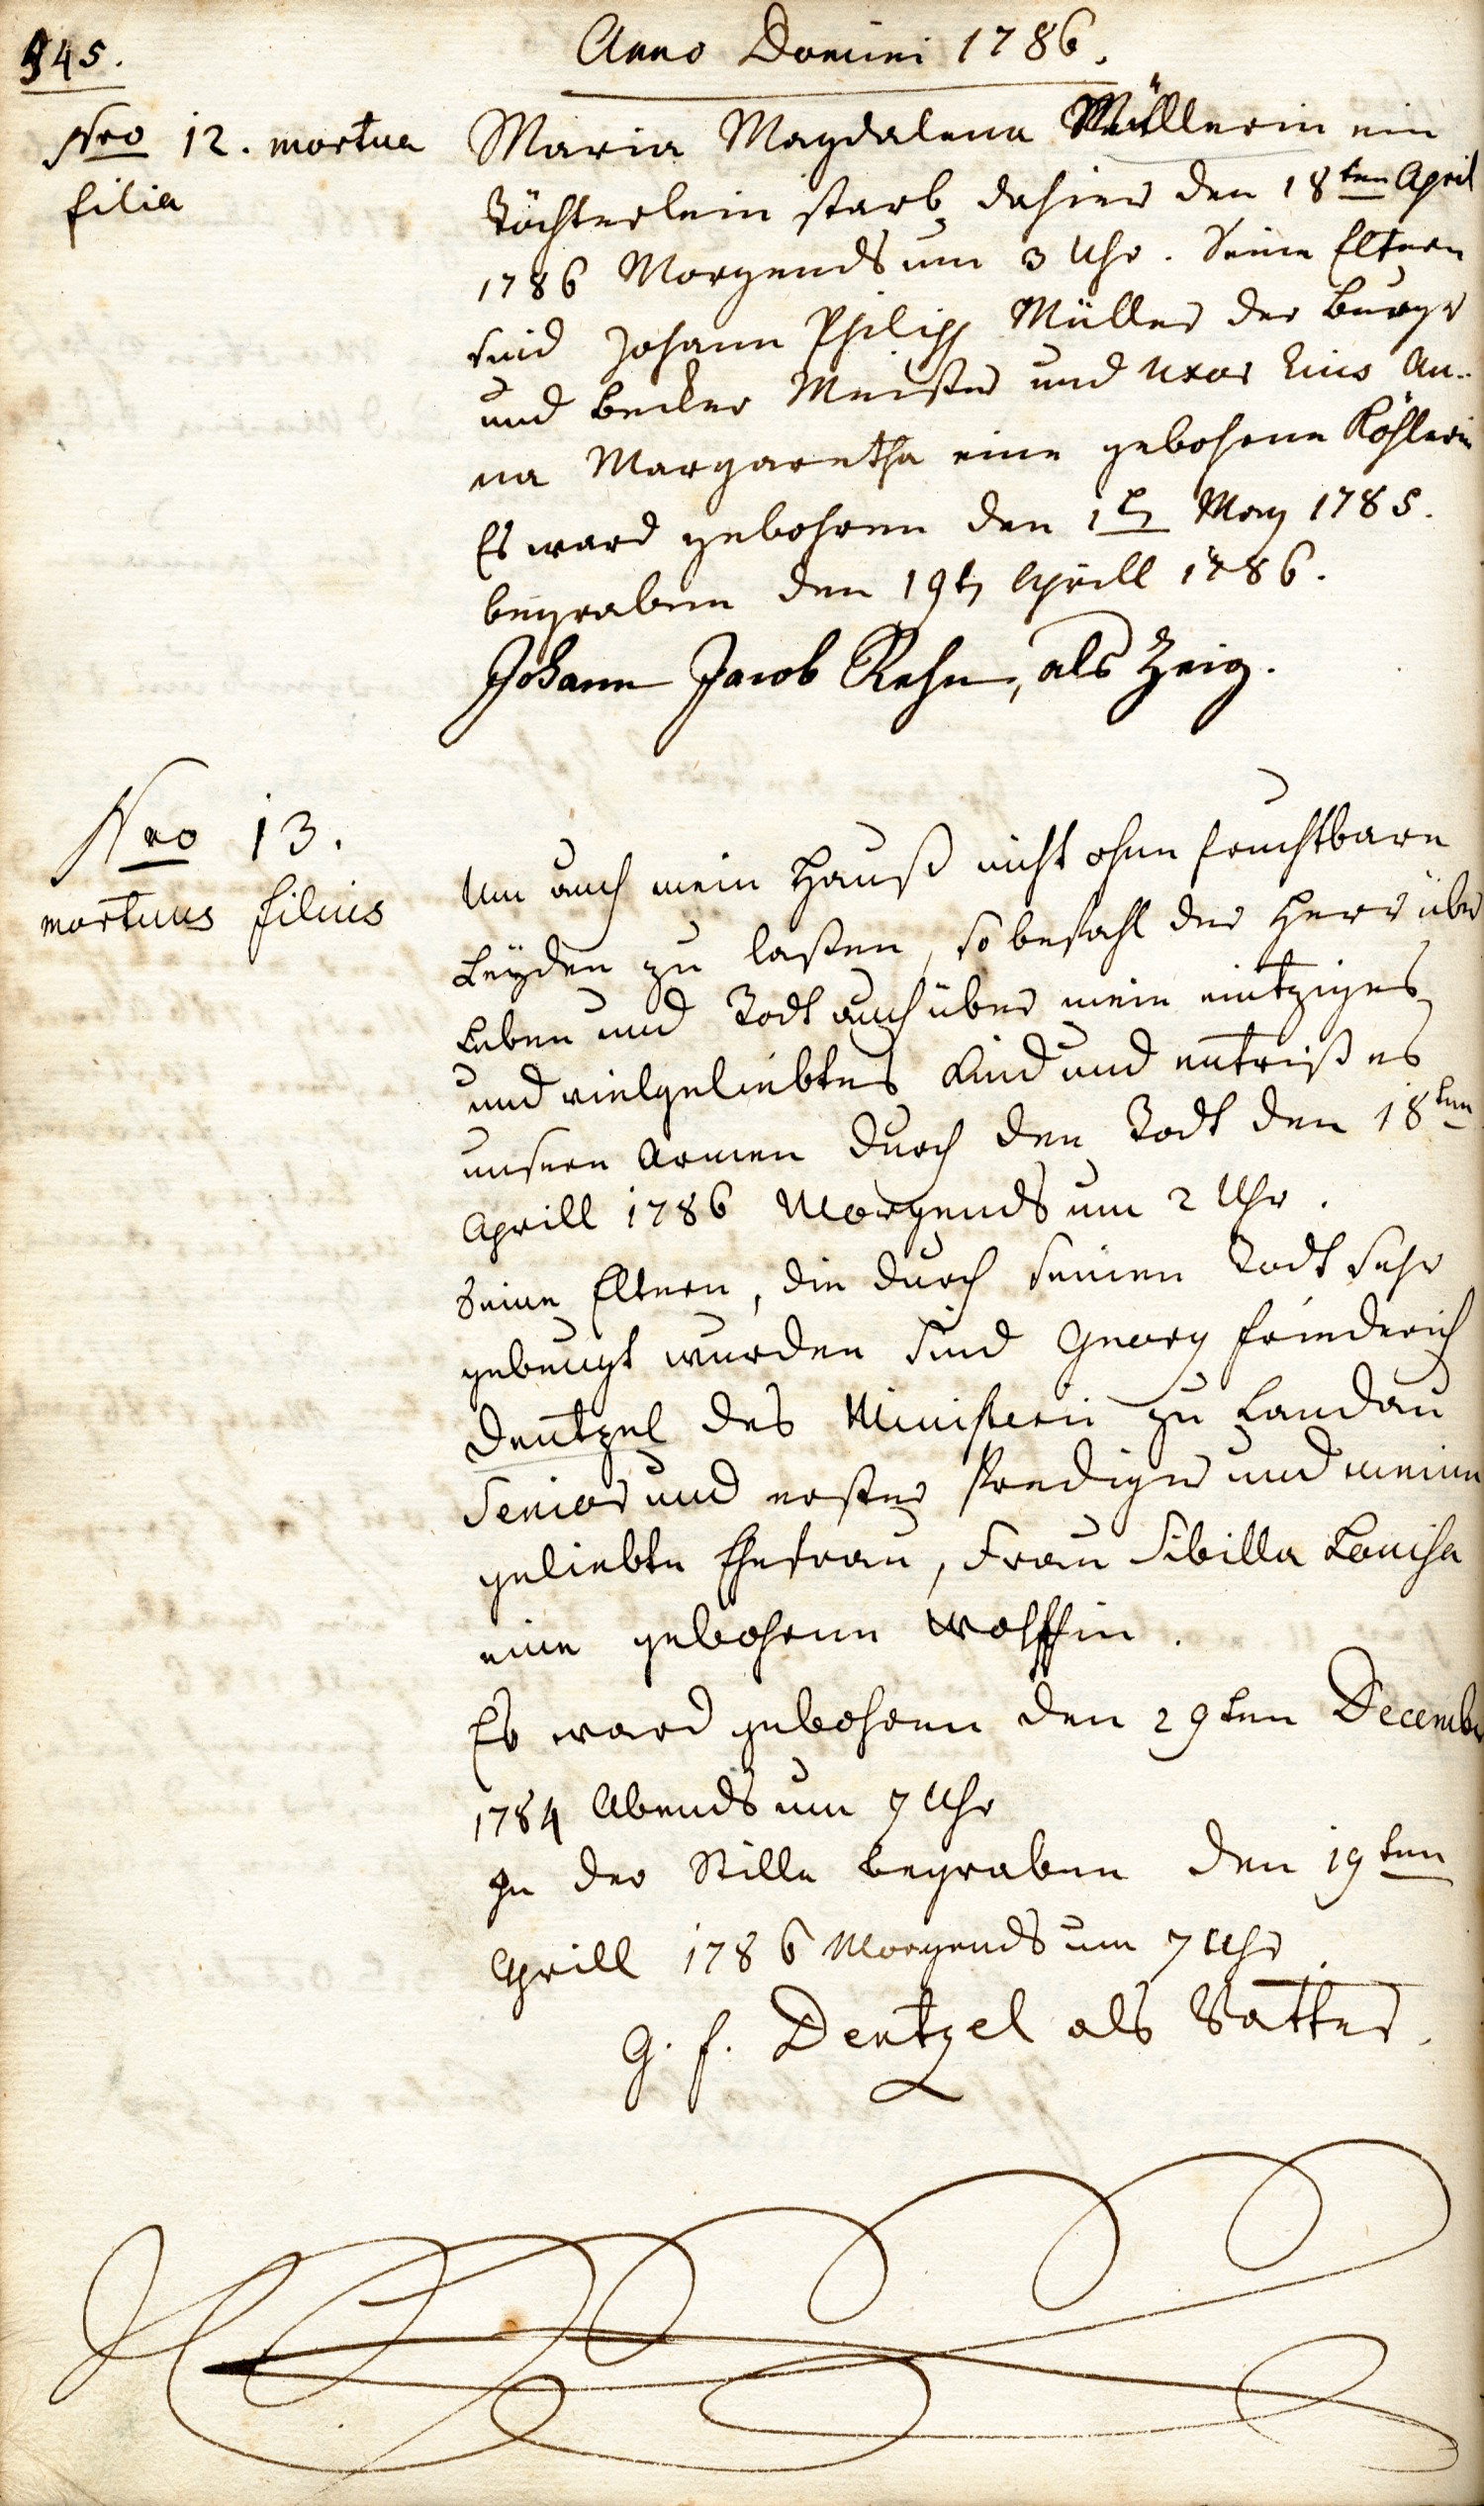 945.
Anno Domini 1786.
Nro 12. mortua
filia
Maria Magdalena Müllerin ein
Töchterlein starb dahier den 18ten April
1786 Morgends um 3 Uhr. Seine Eltern
sind Johann Philipp Müller der Burgr
und Becker Meister und uxor Eius An-
na Margaretha eine gebohrne Köhlerin
Es ward gebohren den 1t May 1785.
begraben den 19t Aprill 1786.
Johann Jacob Rehm, als Zeig.
Nro 13.
mortuus filius
Um auch mein Hauß nicht ohne fruchtbare
Leyden zu laßen, so befahl der Herr über
Leben und Todt auch über mein eintziges
und vielgeliebtes Kind und entriß es
unsern Armen durch den Todt den 18ten
Aprill 1786 Morgends um 2 Uhr.
Seine Eltern, die durch seinen Todt sehr
gebeugt wurden sind Georg Friederich
Dentzel des Ministerii zu Landau
Senior und erster Prediger und meine
geliebte Ehefrau, Frau Sibilla Louisa
eine gebohrne Wolffin.
Es ward gebohren den 29ten December
1784 Abends um 7 Uhr
In der Stille begraben den 19ten
Aprill 1786 Morgends um 7 Uhr
G. f. Dentzel als Vatter.